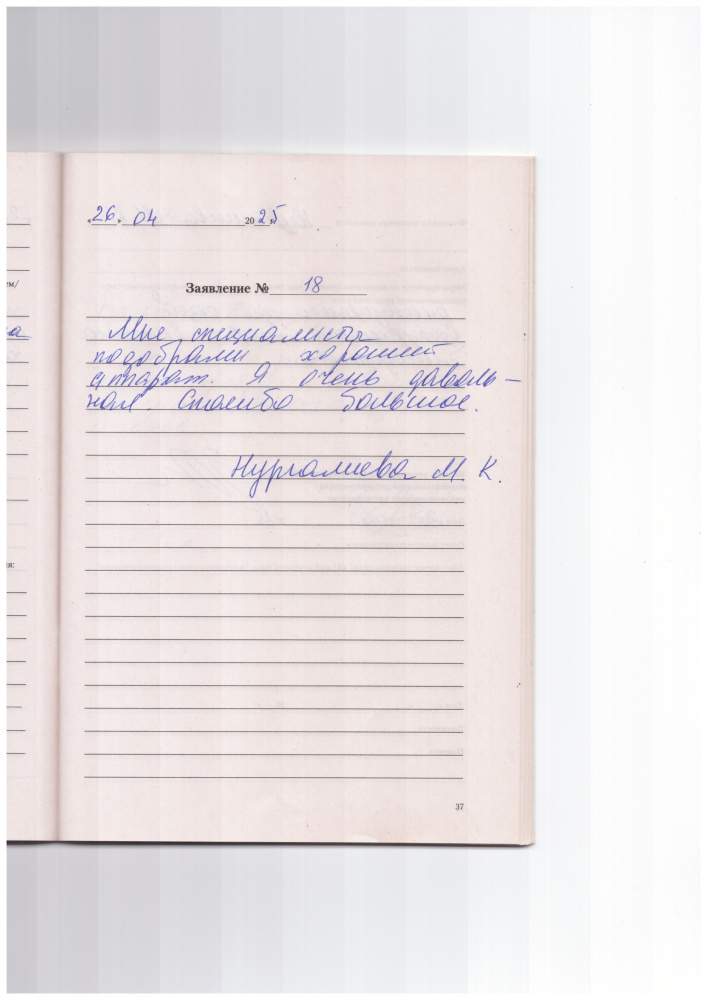 «26» 04 2025 г.
Заявление № 18
Мне специалисты
подобрали хороший
аппарат. Я очень даволь-
ная. Спасибо большое.
Нургалиева М. К.
37